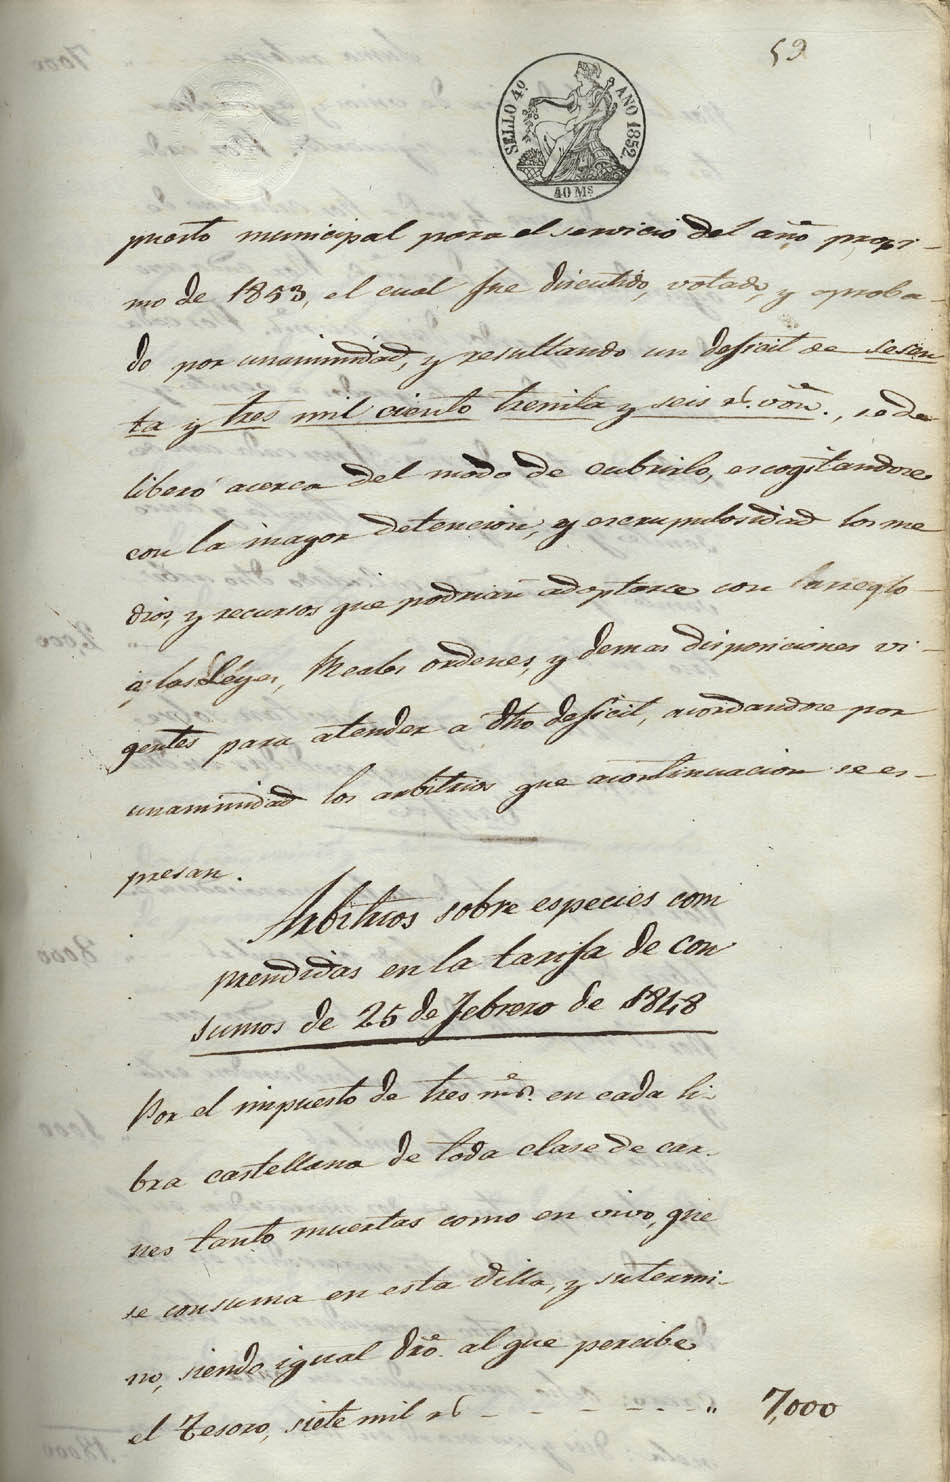 59
SELLO 4º AÑO 1852.
40 Ms
puesto municipal para el servicio del año procsi-
mo de 1853, el cual fue discutido, votado, y aproba-
do por unanimidad, y resultando un deficit de sesen
ta y tres mil ciento treinta y seis rs. von., se de
liberó acerca del modo de cubrirlo, escogitandose
con la mayor detencion, y escrupulosidad los me
dios, y recursos que podrian adoptarse con arreglo
á las Leyes, Reales ordenes, y demas disposiciones vi-
gentes para atender á dho deficit, acordandose por
unanimidad los arbitrios que acontinuacion se es-
presan.
Arbitrios sobre especies com
prendidas en la tarifa de con
sumos de 25 de Febrero de 1848
Por el impuesto de tres mrs. en cada li-
bra castellana de toda clase de car-
nes tanto muertas como en vivo, que
se consuma en esta Villa, y su termi-
no, siendo igual dro. al que percibe
el Tesoro, siete mil rs - - - - - - " 7,000